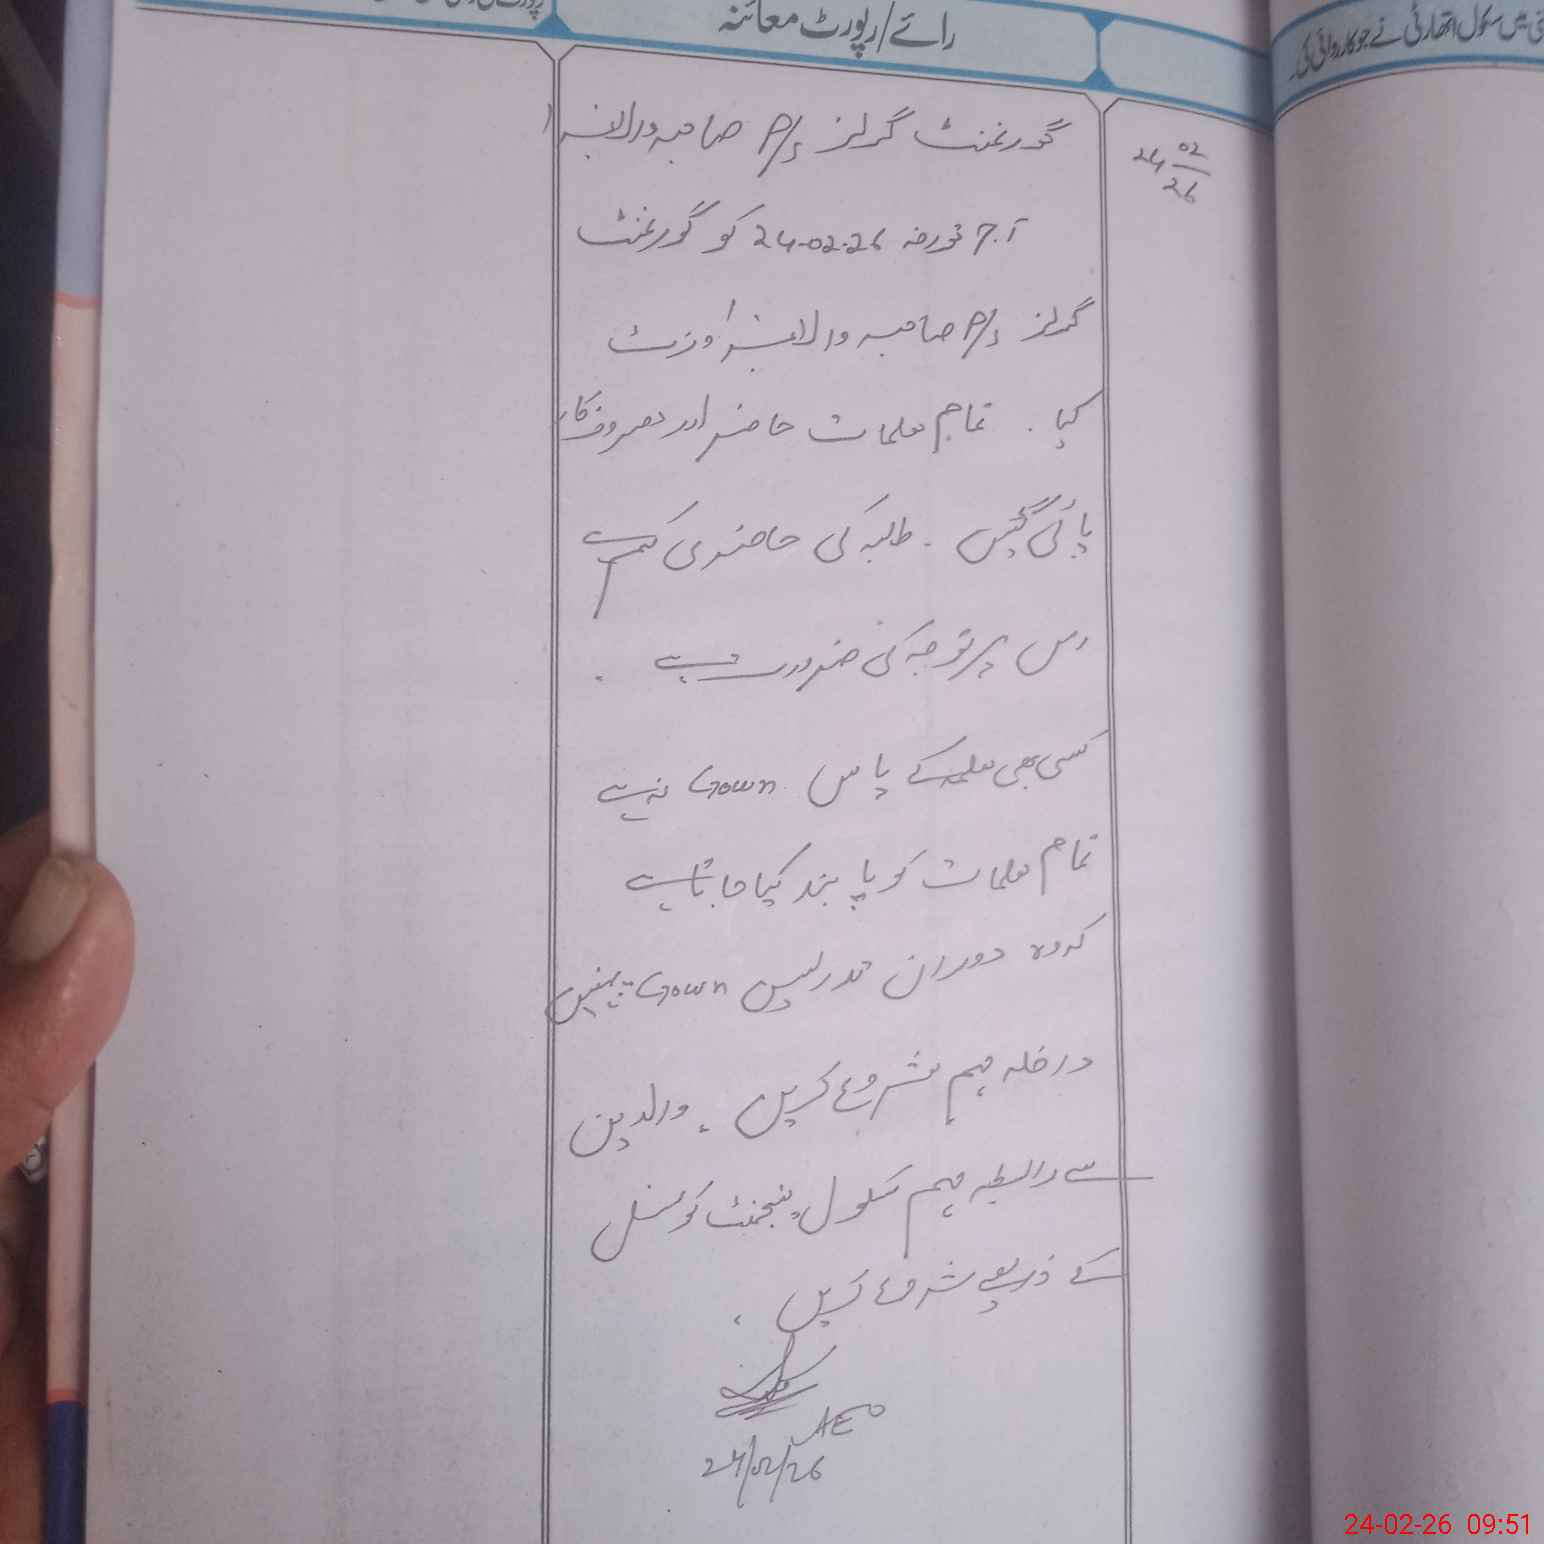 رائے/رپورٹ معائنہ
میں سکول اتھارٹی نے جو کارروائی کی۔
24 02/26
گورنمنٹ گرلز P/s صاحبہ والا نمبر 1
آج مورخہ 24-02-26 کو گورنمنٹ
گرلز P/s صاحبہ والا نمبر 1 وزٹ
کیا ۔ تمام معلمات حاضر اور مصروف کار
پائی گئیں ۔ طلبہ کی حاضری کم ہے
اس پر توجہ کی ضرورت ہے ۔
کسی بھی معلمہ کے پاس Gown نہ ہے
تمام معلمات کو پابند کیا جاتا ہے
کہ وہ دوران تدریس Gown پہنیں
داخلہ مہم شروع کریں ۔ والدین
سے رابطہ مہم سکول مینجمنٹ کونسل
کے ذریعے شروع کریں ۔
AEO
24/02/26
24-02-26 09:51